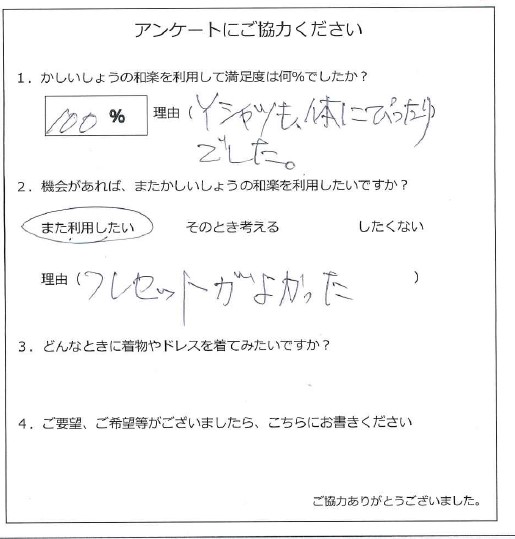 アンケートにご協力ください
1．かしいしょうの和楽を利用して満足度は何%でしたか？
100 % 理由（Yシャツも、体にぴったり
でした。
2．機会があれば、またかしいしょうの和楽を利用したいですか？
また利用したい そのとき考える したくない
理由（フルセットがよかった）
3．どんなときに着物やドレスを着てみたいですか？
4．ご要望、ご希望等がございましたら、こちらにお書きください
ご協力ありがとうございました。